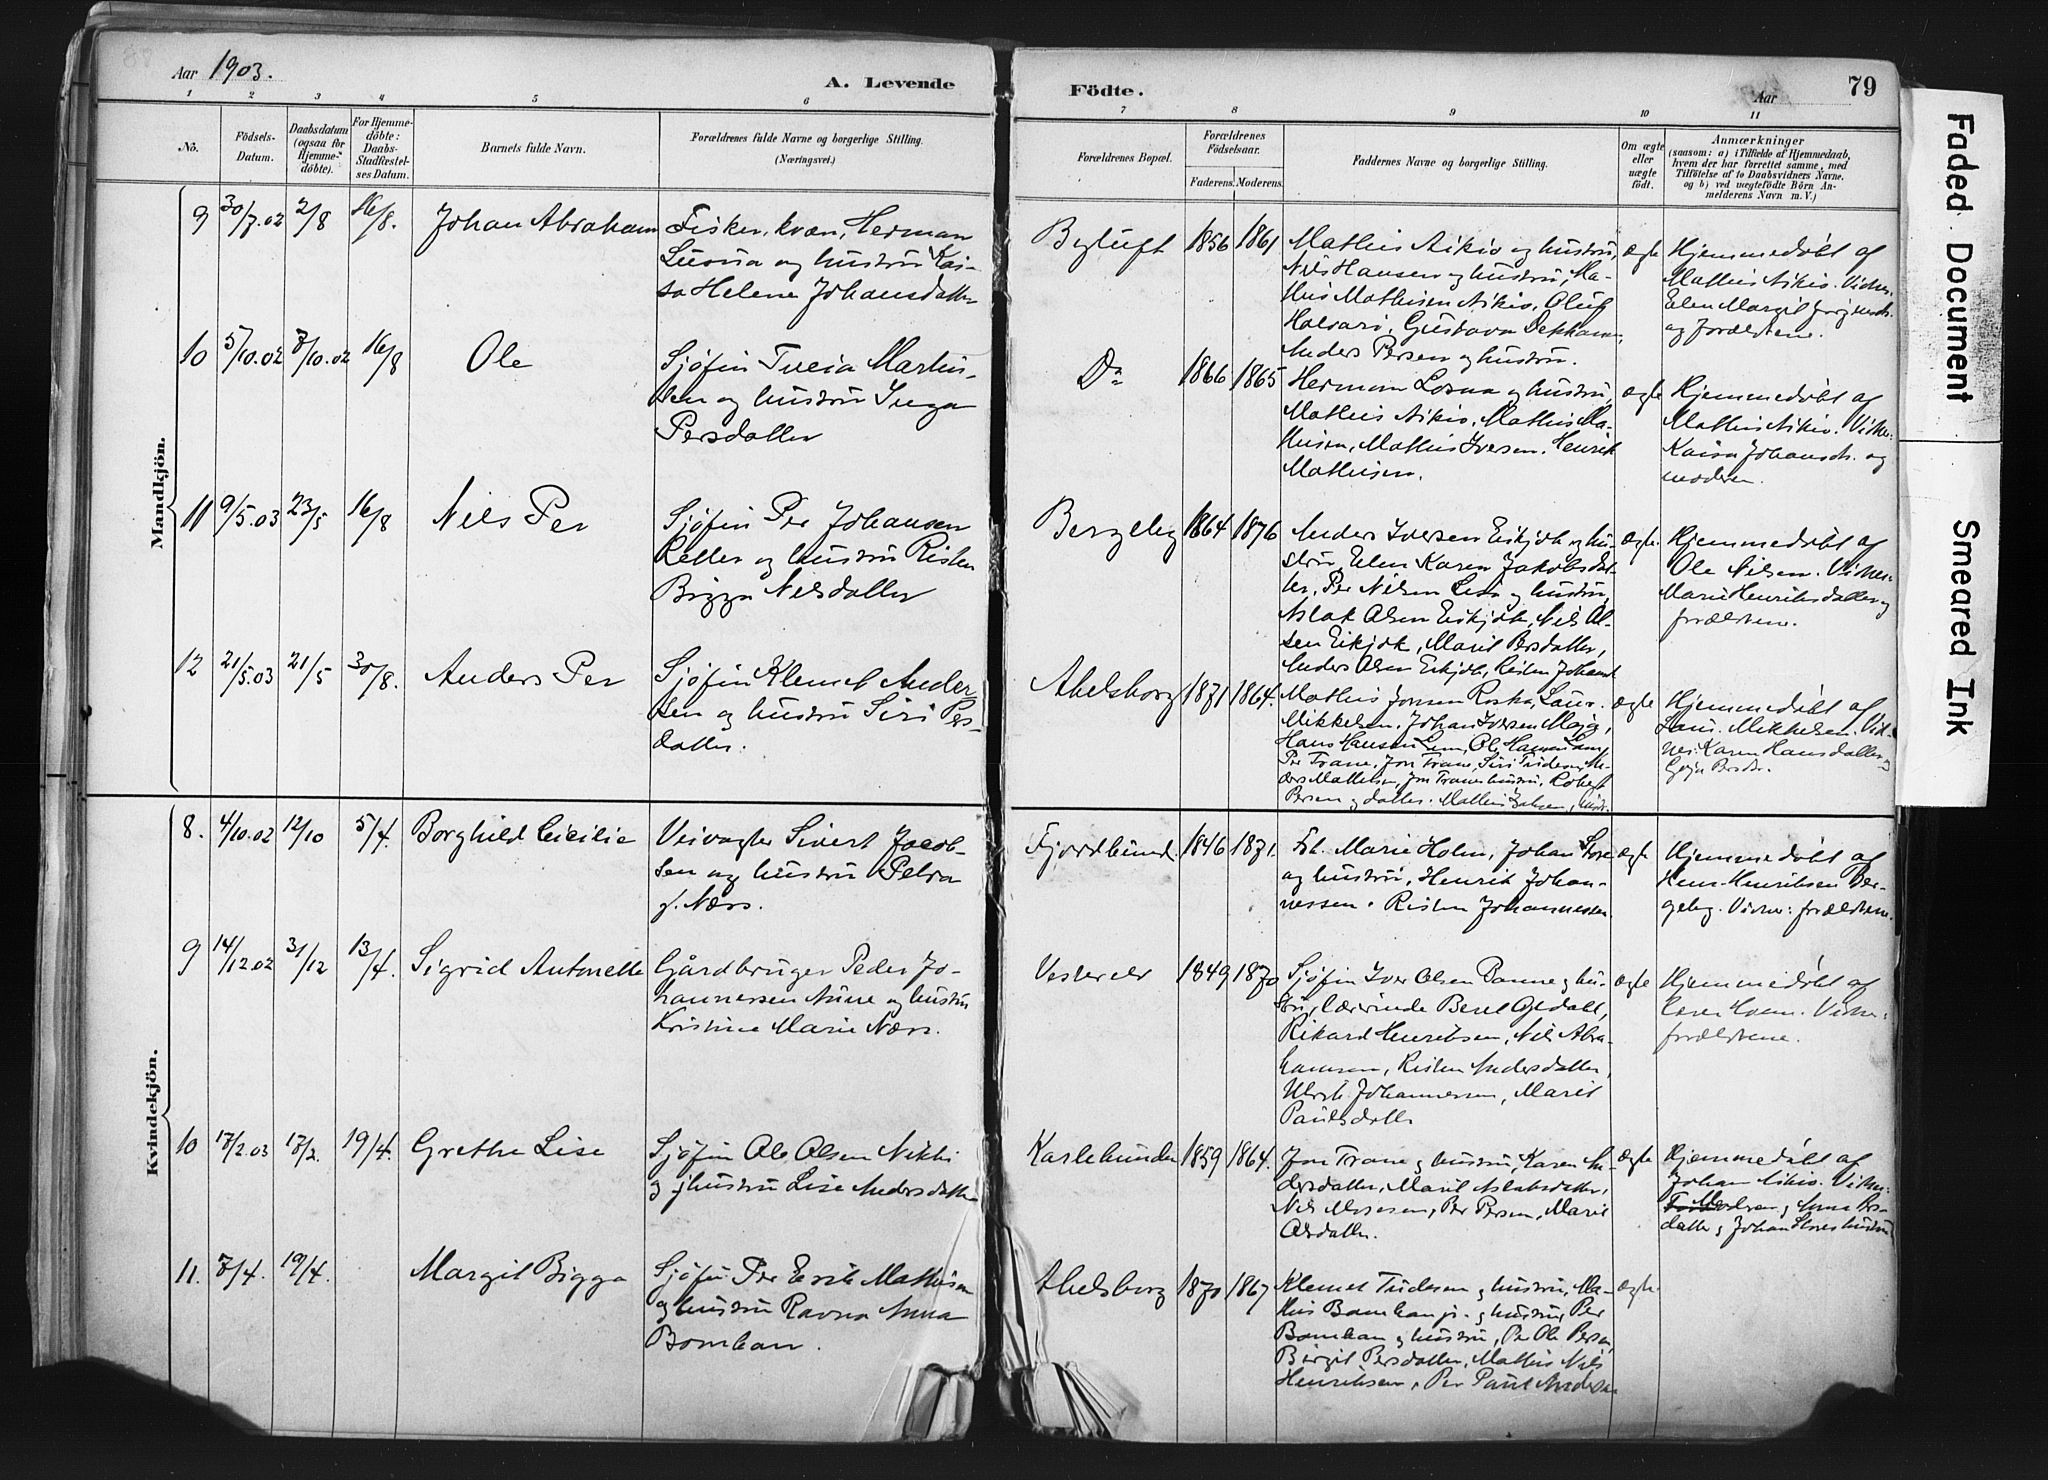 Aar 1903.
A. Levende
Födte.
Aar
79
1 2 3 4 5 6 7 8 9 10 11
Nô.
Födsels-
Datum.
Daabsdatum
(ogsaa for
Hjemme-
döbte).
For Hjemme-
döbte:
Daabs-
Stadfæstel-
ses Datum.
Barnets fulde Navn.
Forældrenes fulde Navne og borgerlige Stilling.
(Næringsvei.)
Forældrenes Bopæl.
Forældrenes
Födselsaar.
Faderens. Moderens.
Faddernes Navne og borgerlige Stilling.
Om ægte
eller
uægte
födt.
Anmærkninger
(saasom: a) i Tilfælde af Hjemmedaab,
hvem der har forrettet samme, med
Tilföielse af to Daabsvidners Navne,
og b) ved uægtefödte Börn An-
melderens Navn m. V.)
Mandkjön.
9 30/7.02 2/8 16/8. Johan Abraham
Fisker, kvæn, Herman
og hustru Kai-
sa Helene Johansdatter
Byluft 1856 1861
Mathis Aikio og hustru,
Nils Hansen og hustru, Ma-
this Mathisen Aikio, Oluf
Gustava
Anders Persen og hustru.
ægte
Hjemmedøbt af
Mathis Aikio. Vidner:
Elen Margit
og forældrene.
10 5/10.02 7/10.02 16/8 Ole
Sjøfin Martin-
sen og hustru Inga
Persdatter
Do 1866 1865
Herman og hustru,
Mathis Aikio, Mathis Ma-
thisen, Mathis Iversen, Henrik
Mathisen.
ægte
Hjemmedøbt af
Mathis Aikio. Vidner:
Kaisa Johansdtr. og
moderen.
11 9/5.03 23/5 16/8 Nils Per
Sjøfin Per Johansen
og hustru Risten
Bigga Nilsdatter
Bergeby 1864 1876
Anders Iversen Eikjok og hu-
stru, Elen Karen Jakobsdat-
ter, Per Nilsen og hustru,
Aslak Olsen Eikjok, Nils Ol-
sen Eikjok, Marit Persdatter,
Anders Olsen Eikjok, Risten Johansd.
ægte.
Hjemmedøbt af
Ole Nilsen. Vidner:
Marie Henriksdatter og
forældrene.
12 21/5.03 21/5 30/8. Anders Per
Sjøfin Klemet Ander-
sen og hustru Siri Pers-
datter.
Abelsborg 1871 1864.
Mathis Jonsen Laur.
Mikkelsen, Johan Iversen
Hans Hansen Ole Hansen
Per Trane, Jon Trane, Siri
Mathisen, Jon Tranes hustru, Robert
Persen og datter. Mathis
ægte
Hjemmedøbt af
Laur. Mikkelsen. Vid-
ner: Karen Hansdatter og
Persdtr.
Kvindekjön.
8. 4/10.02 12/10 5/4. Borghild Cicilie
Veivogter Sivert Jacob-
sen og hustru Petra
f. Næss.
Fjordbund. 1846 1871.
Marie Holm, Johan Store
og hustru, Henrik Johan-
nessen, Risten Johannessen.
ægte
Hjemmedøbt af
Henr. Henriksen Ber-
geby. Vidner: forældrene.
9 14/12.02 31/12 13/4. Sigrid Antonette
Gårdbruger Peder Jo-
hannessen og hustru
Kristine Marie Næss.
Vesterelv 1849 1870
Sjøfin Iver Olsen og hu-
stru, lærerinde Beret
Rikard Henriksen, Nils Abra-
hamsen, Risten Andersdatter,
Ulrik Johannessen, Marit
Paulsdatter
ægte
Hjemmedøbt af
Vidner:
forældrene.
10 17/2.03 17/2. 19/4. Grethe Lise
Sjøfin Ole Olsen Nikki
og hustru Lise Andersdatter
Karlebunden 1859 1864.
Jon Trane og hustru, Karen An-
dersdatter, Marit Aslaksdatter,
Nils Mosesen, Per Persen, Marit
Olsdatter.
ægte
Hjemmedøbt af
Johan Aikio. Vidner:
Moderen og Anna Pers-
datter og Johan Stores hustru
11. 7/4. 19/4. Margit Bigga
Sjøfin Per Erik Mathisen
og hustru Ravna Anna
Bomban.
Abelsborg 1870 1867
Klemet og hustru, Ma-
this Bomban jr. og hustru, Per
Bomban og hustru, Per Ole Persen,
Birgit Persdatter, Mathis Nils
Henriksen, Per Paul Andersen
ægte.
Faded Document
Smeared Ink